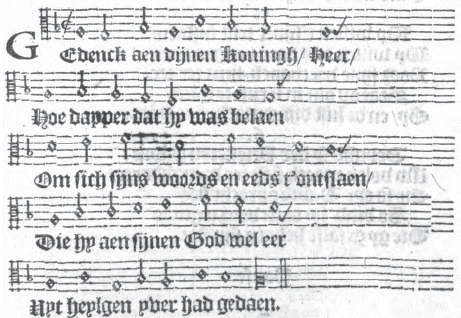 GEdenck aen dijnen Koningh/ Heer/
Hoe dapper dat hy was belaen
Om sich sijns woords en eeds t'ontslaen/
Die hy aen sijnen God wel eer
Uyt heylgen yver had gedaen.